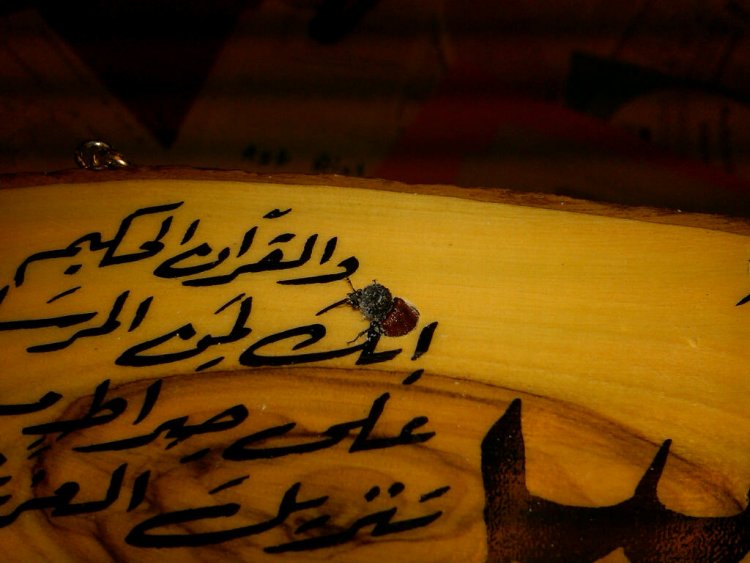 والقرآن الحكيم
إنكَ لَمِن المرسَ
على صراطٍ
تَنزيلَ العز